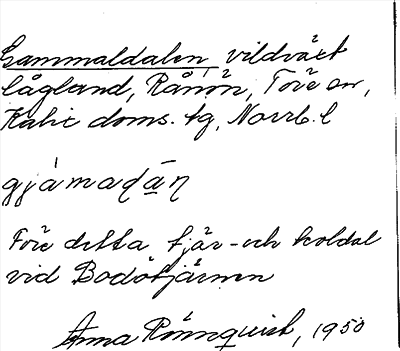 Gammaldalen, vildväxt
lågland, Rånön, Töre sn,
Kalix doms. tg, Norrb. l
gjàmadān
Före detta fjär- och koldal
vid Bodötjärnen
Anna Rönnquist, 1950